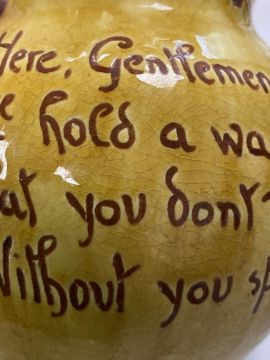 Here, Gentlemen
hold a wa
at you dont
Without you sp